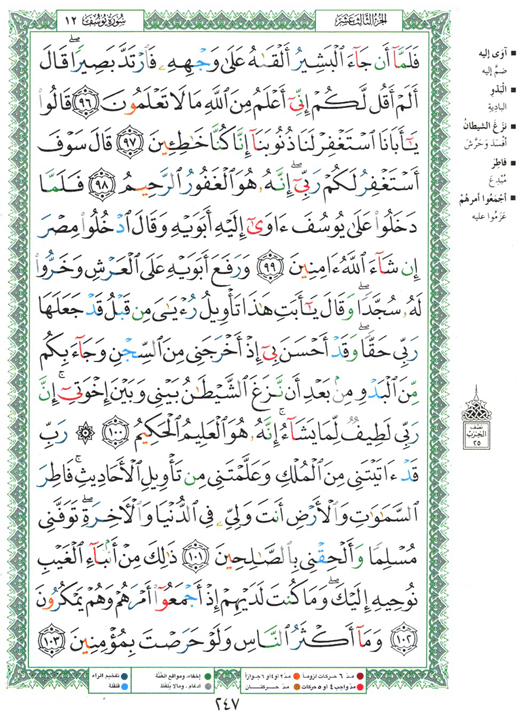 الجزء الثالث عشر
سورة يوسف ١٢
فَلَمَّآ أَن جَآءَ ٱلْبَشِيرُ أَلْقَىٰهُ عَلَىٰ وَجْهِهِۦ فَٱرْتَدَّ بَصِيرًا ۖ قَالَ
أَلَمْ أَقُل لَّكُمْ إِنِّىٓ أَعْلَمُ مِنَ ٱللَّهِ مَا لَا تَعْلَمُونَ ٩٦ قَالُوا۟
يَـٰٓأَبَانَا ٱسْتَغْفِرْ لَنَا ذُنُوبَنَآ إِنَّا كُنَّا خَـٰطِـِٔينَ ٩٧ قَالَ سَوْفَ
أَسْتَغْفِرُ لَكُمْ رَبِّىٓ ۖ إِنَّهُۥ هُوَ ٱلْغَفُورُ ٱلرَّحِيمُ ٩٨ فَلَمَّا
دَخَلُوا۟ عَلَىٰ يُوسُفَ ءَاوَىٰٓ إِلَيْهِ أَبَوَيْهِ وَقَالَ ٱدْخُلُوا۟ مِصْرَ
إِن شَآءَ ٱللَّهُ ءَامِنِينَ ٩٩ وَرَفَعَ أَبَوَيْهِ عَلَى ٱلْعَرْشِ وَخَرُّوا۟
لَهُۥ سُجَّدًا ۖ وَقَالَ يَـٰٓأَبَتِ هَـٰذَا تَأْوِيلُ رُءْيَـٰىَ مِن قَبْلُ قَدْ جَعَلَهَا
رَبِّى حَقًّا ۖ وَقَدْ أَحْسَنَ بِىٓ إِذْ أَخْرَجَنِى مِنَ ٱلسِّجْنِ وَجَآءَ بِكُم
مِّنَ ٱلْبَدْوِ مِنۢ بَعْدِ أَن نَّزَغَ ٱلشَّيْطَـٰنُ بَيْنِى وَبَيْنَ إِخْوَتِىٓ ۚ إِنَّ
رَبِّى لَطِيفٌ لِّمَا يَشَآءُ ۚ إِنَّهُۥ هُوَ ٱلْعَلِيمُ ٱلْحَكِيمُ ١٠٠ ۞ رَبِّ
قَدْ ءَاتَيْتَنِى مِنَ ٱلْمُلْكِ وَعَلَّمْتَنِى مِن تَأْوِيلِ ٱلْأَحَادِيثِ ۚ فَاطِرَ
ٱلسَّمَـٰوَٰتِ وَٱلْأَرْضِ أَنتَ وَلِىِّۦ فِى ٱلدُّنْيَا وَٱلْـَٔاخِرَةِ ۖ تَوَفَّنِى
مُسْلِمًا وَأَلْحِقْنِى بِٱلصَّـٰلِحِينَ ١٠١ ذَٰلِكَ مِنْ أَنۢبَآءِ ٱلْغَيْبِ
نُوحِيهِ إِلَيْكَ ۖ وَمَا كُنتَ لَدَيْهِمْ إِذْ أَجْمَعُوٓا۟ أَمْرَهُمْ وَهُمْ يَمْكُرُونَ
١٠٢ وَمَآ أَكْثَرُ ٱلنَّاسِ وَلَوْ حَرَصْتَ بِمُؤْمِنِينَ ١٠٣
آوى إليه
ضمّ إليه
البَدْو
البادية
نزغ الشيطان
أفسد وحرّش
فاطر
مُبْدِعَ
أجمعوا أمرهم
عزموا عليه
نصف
الحزب
٢٥
مدّ ٦ حركات لزوماً
مدّ ٢ أو ٤ أو ٦ جوازاً
إخفاء، ومواقع الغُنَّة
تفخيم الراء
مدّ واجب ٤ أو ٥ حركات
مدّ حركتان
ادغام، وما لا يُلفظ
قلقلة
٢٤٧